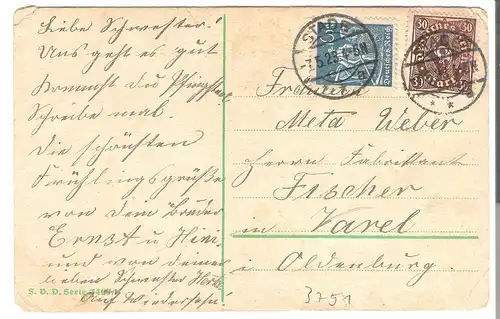 Liebe Schwester!
Uns geht es gut
kommst du Pfingsten
Schreibe mal.
die schönsten
Frühlingsgrüße
von dem Bruder
Ernst u
und von deiner
lieben Schwester
Auf Wiedersehn!
S. V. D. Serie
STADE
Deutsches Reich
30
30
Fräulein
Meta Weber
Herrn Fabrikant
Fischer
in Varel
i Oldenburg
3751